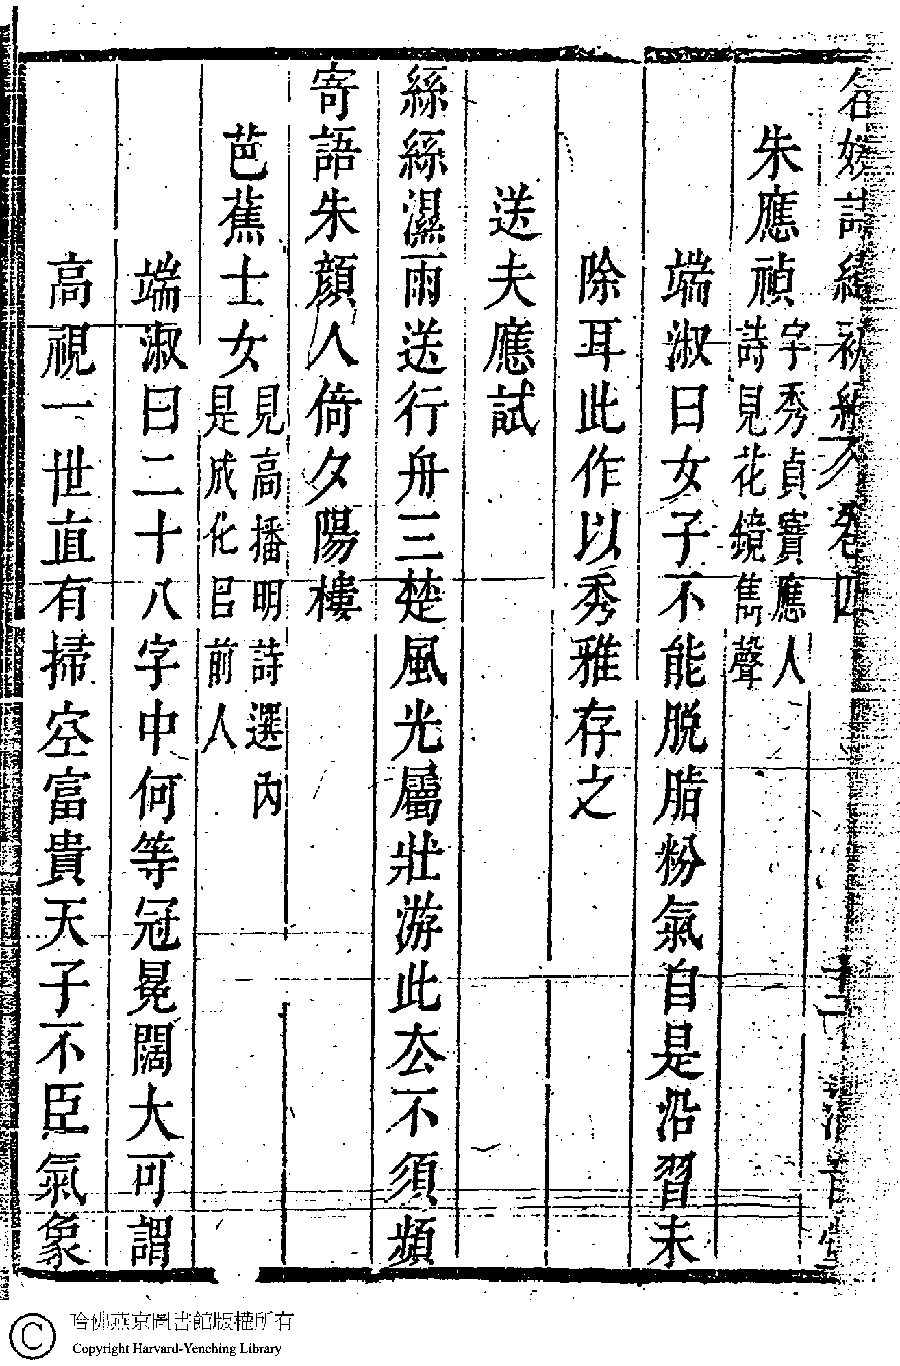 名媛詩緯初編 卷四
朱應禎 字秀貞寶應人
詩見花鏡雋聲
端淑曰女子不能脫脂粉氣自是沿習未
除耳此作以秀雅存之
送夫應試
絲絲濕雨送行舟三楚風光屬壯游此去不須頻
寄語朱顏人倚夕陽樓
芭蕉士女 見高播明詩選內
是成化呂前人
端淑曰二十八字中何等冠冕闊大可謂
高視一世直有掃空富貴天子不臣氣象
哈佛燕京圖書館版權所有
Copyright Harvard-Yenching Library